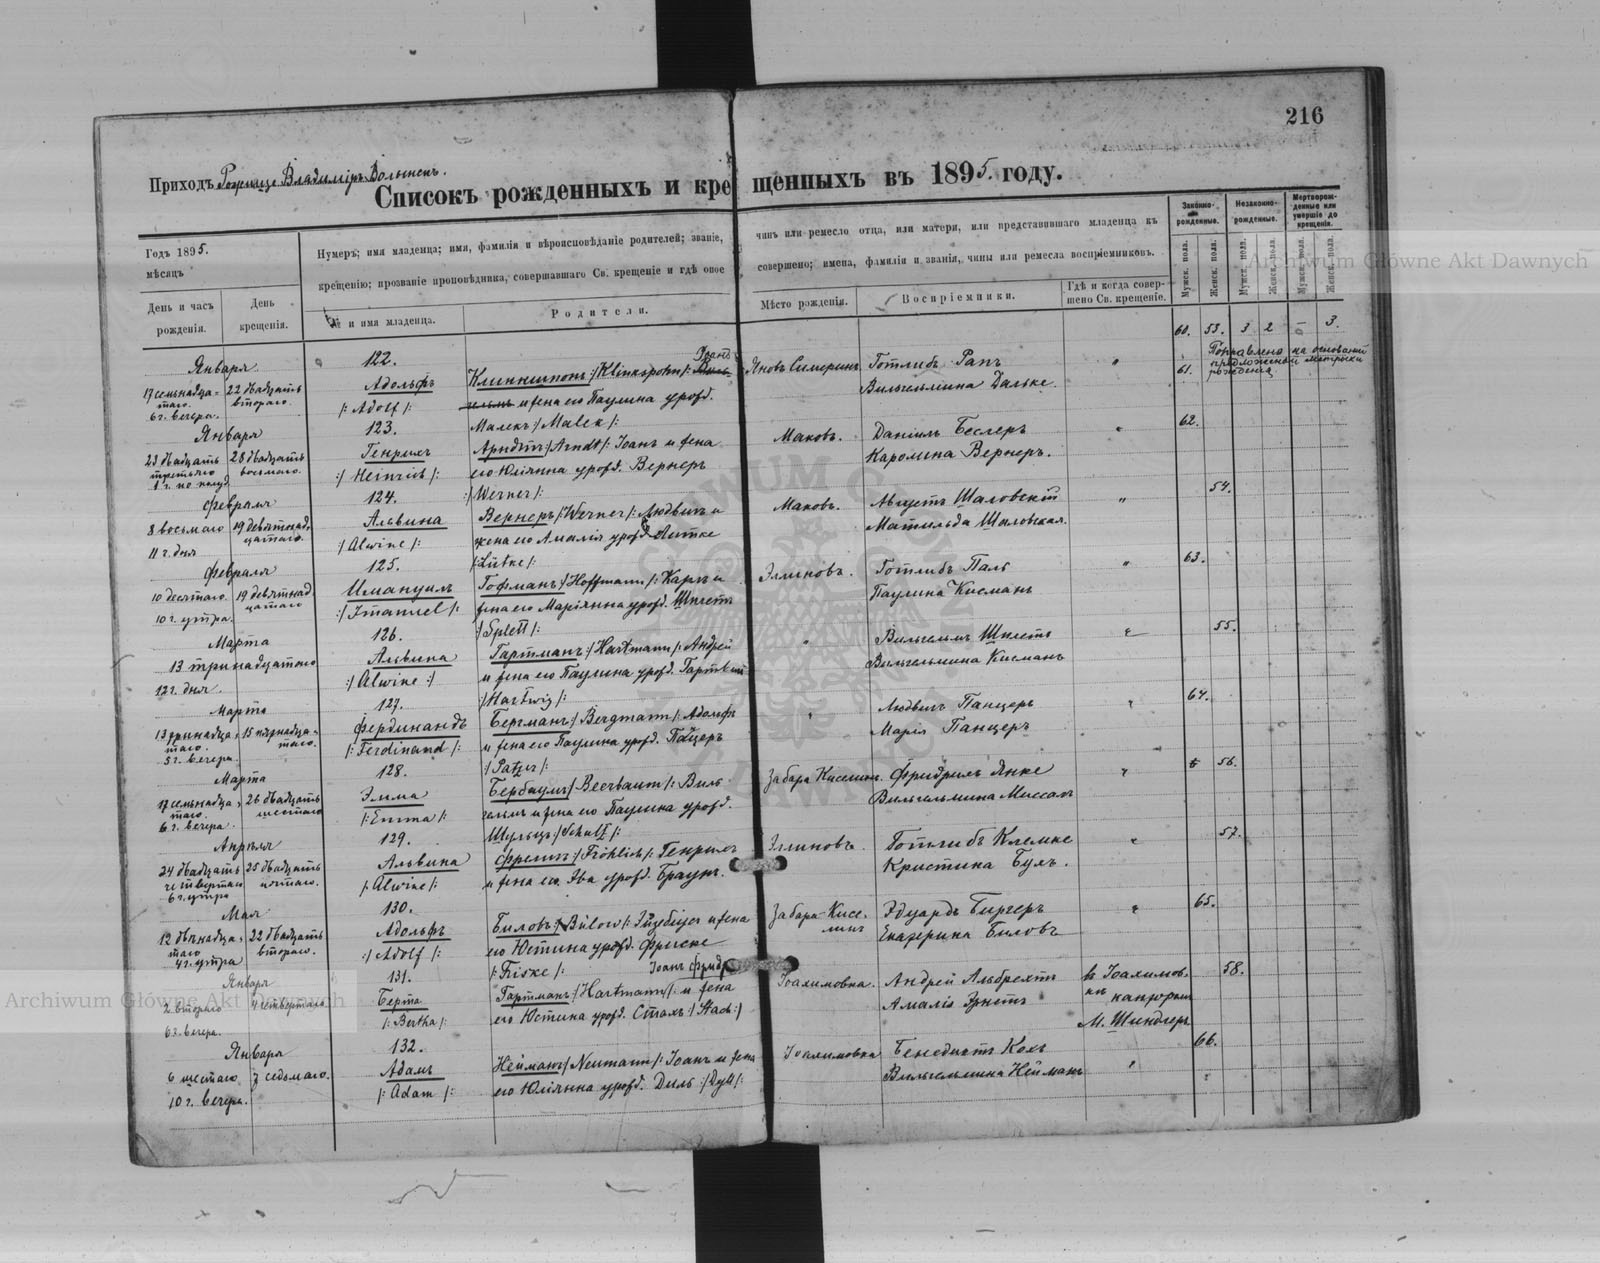 216
Приходъ Рожище Владиміръ Волынскъ.
Списокъ рожденныхъ и крещенныхъ въ 1895. году.
Годъ 1895.
мѣсяцъ
День и часъ рожденія.
День крещенія.
Нумеръ; имя младенца; имя, фамилія и вѣроисповѣданіе родителей; званіе, чинъ или ремесло отца, или матери, или представившаго младенца къ
крещенію; прозваніе проповѣдника, совершавшаго Св. крещеніе и гдѣ оное совершено; имена, фамиліи и званія, чины или ремесла воспріемниковъ.
№ и имя младенца.
Родители.
Мѣсто рожденія.
Воспріемники.
Гдѣ и когда совершено Св. крещеніе.
Законно-рожденные.
Незаконно-рожденные.
Мертворожденные или умершіе до крещенія.
Мужск. пола.
Женск. пола.
Мужск. пола.
Женск. пола.
Мужск. пола.
Женск. пола.
60. 53. 3 2 — 3.
Января
122.
17 семьнадцатаго 22 двадцать втораго
6 г. вечера.
Адольфъ
/: Adolf /:
Клинкшпонъ :/Klinkspohn/:
и жена его Паулина урожд.
Малекъ :/Malek/:
Яновъ
Готлибъ Рапъ
Вильгельмина Дальке.
61.
Поправлено на основаніи
рожденія
Января
123.
23 двадцать третьяго 28 двадцать восьмаго.
1 г. по полуд.
Генрихъ
:/ Heinrich /:
Арндтъ :/Arndt/: Іоанъ и жена
его Юліянна урожд. Вернеръ
:/Werner/:
Маковъ.
Даніилъ Беслеръ
Каролина Вернеръ.
62.
Февраля
124.
8 восьмаго 19 девятнадцатаго
11 г. дня
Альвина
:/ Alwine /:
Вернеръ :/Werner/: Людвигъ и
жена его Амалія урожд. Литке
:/Lütke/:
Маковъ.
Августъ Шаловскій
Матильда Шаловская.
54.
Февраля
125.
10 десятаго 19 девятнадцатаго
10 г. утра.
Имануилъ
:/ Imanuel /:
Гофманъ :/Hoffmann/: Карлъ и
жена его Маріянна урожд. Шплетъ
:/Splett/:
Эллиновъ.
Готлибъ Паль
Паулина Кисманъ
63.
Марта
126.
13 тринадцатаго
12 г. дня.
Альвина
:/ Alwine :/
Гартманъ :/Hartmann/: Андрей
и жена его Паулина урожд. Гартвигъ
:/Hartwig/:
Вильгельмъ Шплетъ
Вильгельмина Кисманъ
55.
Марта
127.
13 тринадцатаго. 15 пятнадцатаго.
5 г. вечера.
Фердинандъ
/: Ferdinand /:
Бергманъ :/Bergmann/: Адольфъ
и жена его Паулина урожд. Пацеръ
:/Patzer/:
Людвигъ Панцеръ
Марія Панцеръ
64.
Марта
128.
17 семьнадцатаго. 26 двадцать шестаго
6 г. вечера.
Эмма
/: Emma /:
Бербаумъ :/Beerbaum/: Вильгельмъ и жена его Паулина урожд.
Шульцъ :/Schultz/:
Забара Киселинъ.
Фридрихъ Янке
Вильгельмина Массалъ
56.
Апрѣля
129.
24 двадцать четвертаго 25 двадцать пятаго.
6 г. утра
Альвина
/: Alwine /:
Фрелихъ :/Fröhlich/: Генрихъ
и жена его Эва урожд. Браунъ.
Эллиновъ.
Готлибъ Клемке
Кристина Бухъ.
57.
Мая
130.
12 двѣнадцатаго 22 двадцать втораго.
4 г. утра
Адольфъ
:/ Adolf /:
Биловъ :/Bülow/: и жена
его Юстина урожд. Фриске
/: Friske /:
Забара-Киселинъ
Эдуардъ Биггеръ
Екатерина Биловъ
65.
Января
131.
2 втораго 4 четвертаго
6 г. вечера.
Берта
/: Bertha /:
Іоанъ Фридр.
Гартманъ :/Hartmann/: и жена
его Юстина урожд. Стахъ :/Stach:/
Іоахимовка.
Андрей Альбрехтъ
Амалія Эрнстъ
въ Іоахимовкѣ канторъ
М. Шиндлеръ
58.
Января
132.
6 шестаго 7 седьмаго.
10 г. вечера.
Адамъ
/: Adam /:
Нейманъ :/Neumann/: Іоанъ и жена
его Юліянна урожд. Диль :/Dyll/:
Іоахимовка
Бенедиктъ Кохъ
Вильгельмина Нейманъ
66.
Archiwum Główne Akt Dawnych
Archiwum Główne Akt Dawnych